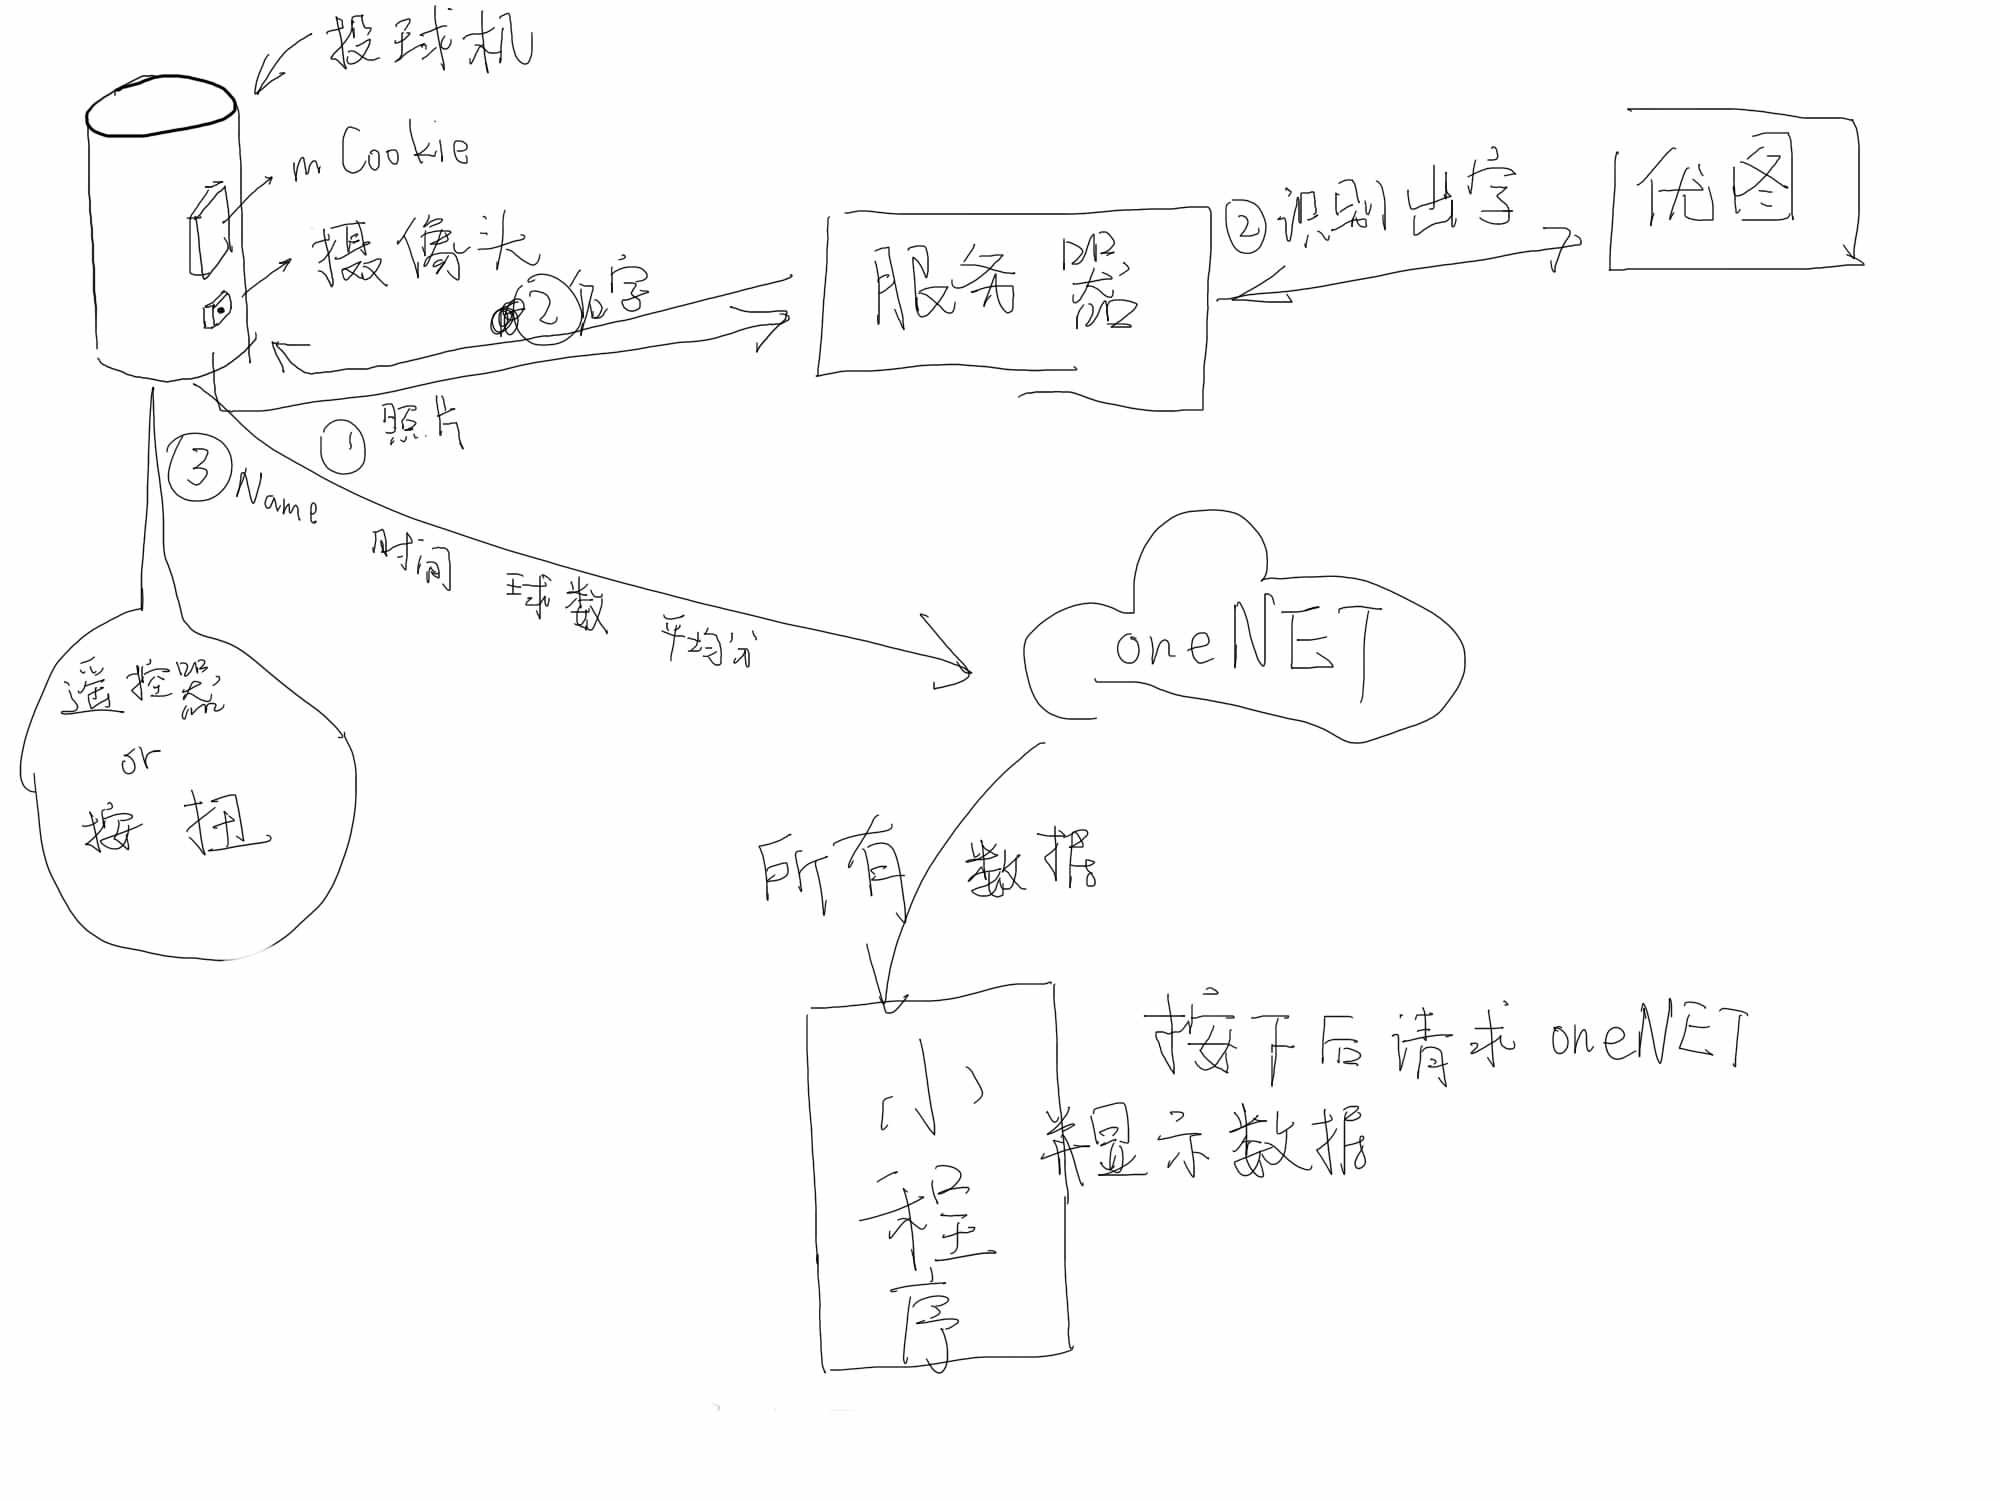 投球机
mCookie
摄像头
②识别出字
优图
服务器
② 字
①照片
③Name 时间 球数 平均分
oneNET
遥控器
or
按扭
所有数据
小程序
按下后请求oneNET
并显示数据